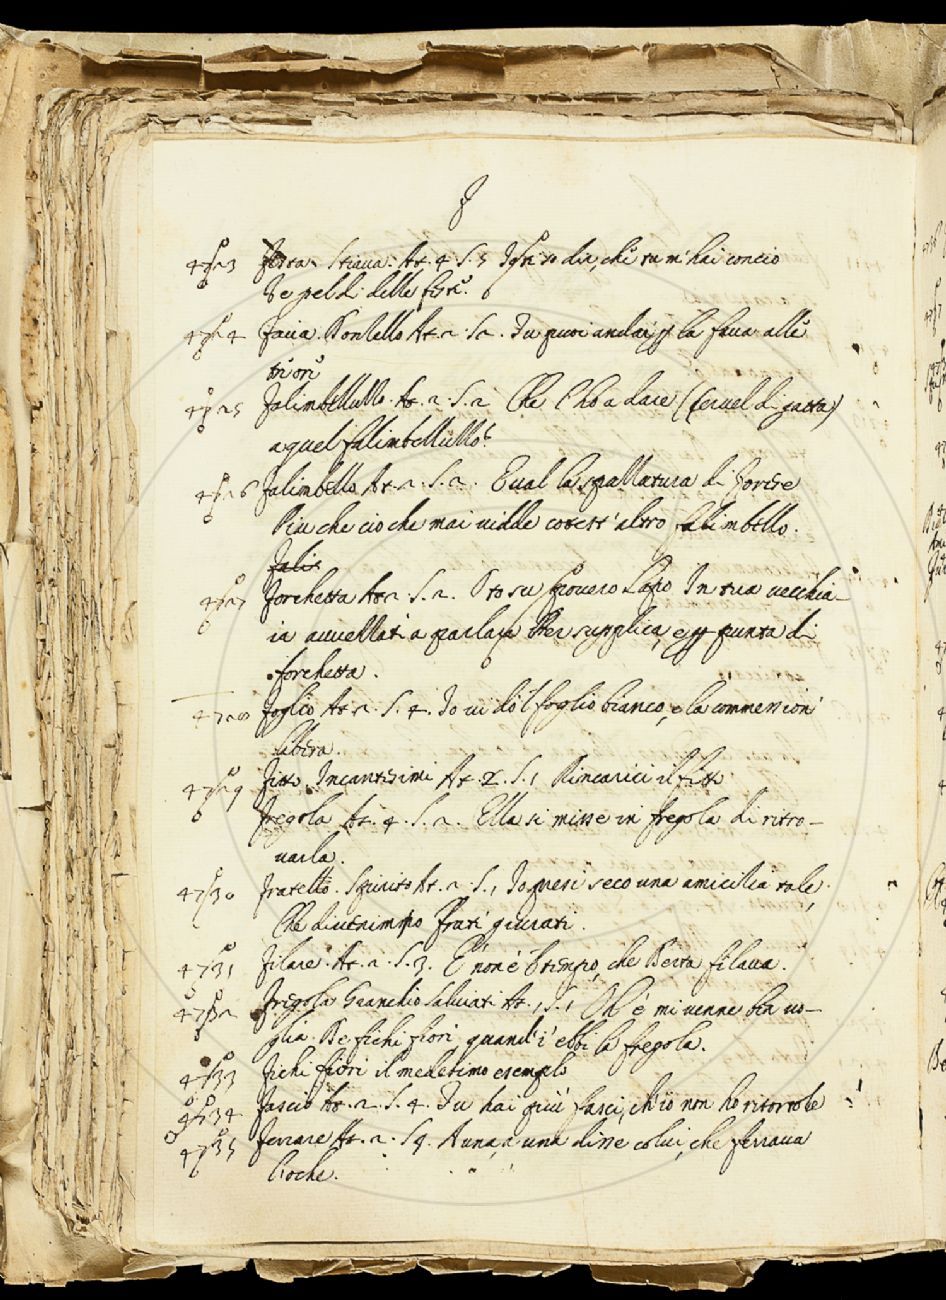 F
Festa. Stiava. At. 4 S. 5 che tu m'hai concio
pel dì delle feste.
Fava. Donzello At. 2 S. 2. Tu puoi andar per la fava alle
Falimbelluzzo. At. 2 S. 2 Che l'ho a dare (cervel di gatta)
a quel falimbelluzzo?
Falimbello At. 2. S. 2. E val la spallatura di
Piu che cio che mai vidde cotest'altro falimbello.
Falis
4727 Forchetta At. 2 S. 2. povero Lapo In tua vecchia-
ia avvezzati a parlar supplica, e per punta di
forchetta.
4728 Foglio At. 2. S. 4. Io vi do 'l foglio bianco, e la commession'
libera.
4729 Fitto. Incantesimi At. 2. S. 1 Rincarici il fitto
Fregola At. 4. S. 2. Ella si misse in fregola di ritro-
varla.
4730 Fratello. Spirito At. 2 S. 1 Io presi seco una amicizia tale,
Che diventammo frati giurati.
4731 Filare. At. 2. S. 3. E' non è 'l tempo, che Berta filava.
4732 Fregola Granchio Salviati At. 1 S. 1 Oh e' mi venne ben vo-
glia De fichi fiori, quand'i' ebbi la fregola.
4733 Fichi fiori il medesimo esempio
4734 Fascio At. 2. S. 4. Tu hai più fasci, ch'io non ho ritortole
4735 Ferrare At. 2. S 4. A una a una disse colui, che ferrava
l'oche.